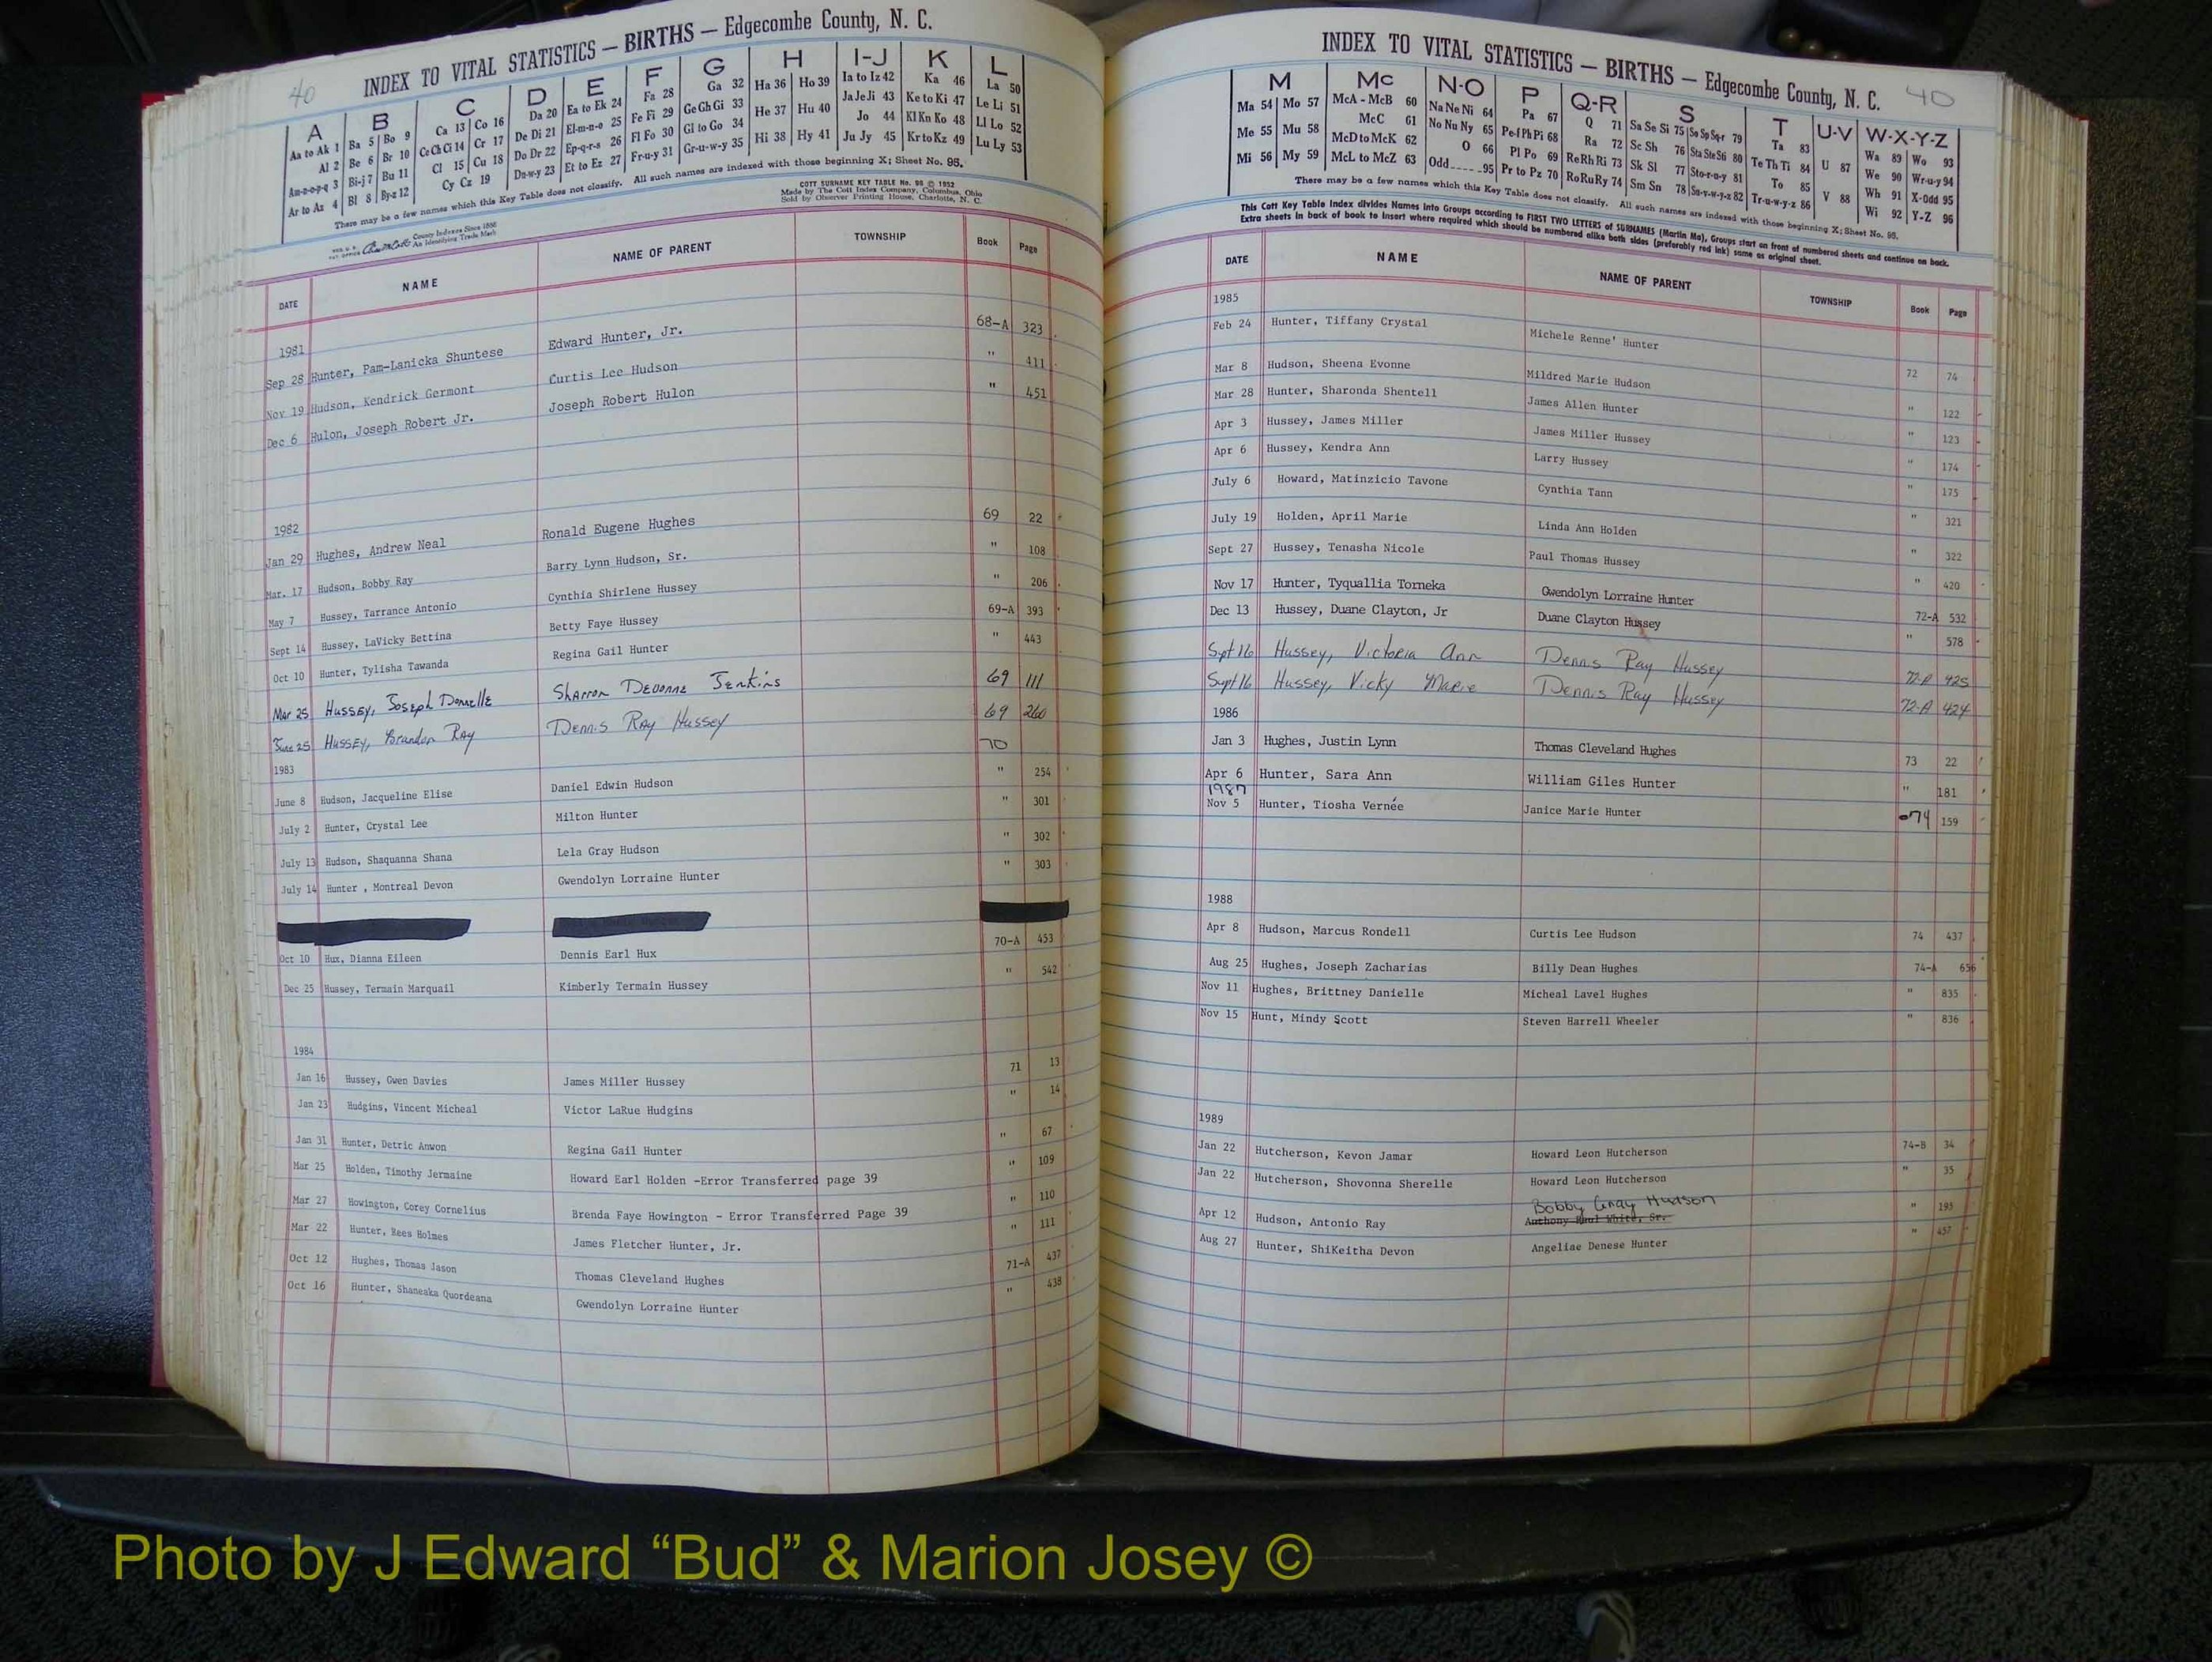 40
INDEX TO VITAL STATISTICS — BIRTHS — Edgecombe County, N. C.
A B C D E F G H I-J K L
Aa to Ak 1 Ba 5 Bo 9 Ca 13 Co 16 Da 20 Ea to Ek 24 Fa 28 Ga 32 Ha 36 Ho 39 Ia to Iz 42 Ka 46 La 50
Al 2 Be 6 Br 10 Ce Ch Ci 14 Cr 17 De Di 21 El-m-n-o 25 Fe Fi 29 Ge Gh Gi 33 He 37 Hu 40 Ja Je Ji 43 Ke to Ki 47 Le Li 51
Am-n-o-p-q 3 Bi-j 7 Bu 11 Cl 15 Cu 18 Do Dr 22 Ep-q-r-s 26 Fl Fo 30 Gl to Go 34 Hi 38 Hy 41 Jo 44 Kl Kn Ko 48 Ll Lo 52
Ar to Az 4 Bl 8 By-z 12 Cy Cz 19 Du-w-y 23 Et to Ez 27 Fr-u-y 31 Gr-u-w-y 35 Ju Jy 45 Kr to Kz 49 Lu Ly 53
There may be a few names which this Key Table does not classify. All such names are indexed with those beginning X; Sheet No. 95.
COTT SURNAME KEY TABLE No. 96 © 1952
Made by The Cott Index Company, Columbus, Ohio
Sold by Observer Printing House, Charlotte, N. C.
County Indexes Since 1888
An Identifying Trade Mark
DATE NAME NAME OF PARENT TOWNSHIP Book Page
1981
Sep 28 Hunter, Pam-Lanicka Shuntese Edward Hunter, Jr. 68-A 323
Nov 19 Hudson, Kendrick Germont Curtis Lee Hudson " 411
Dec 6 Hulon, Joseph Robert Jr. Joseph Robert Hulon " 451
1982
Jan 29 Hughes, Andrew Neal Ronald Eugene Hughes 69 22
Mar. 17 Hudson, Bobby Ray Barry Lynn Hudson, Sr. " 108
May 7 Hussey, Tarrance Antonio Cynthia Shirlene Hussey " 206
Sept 14 Hussey, LaVicky Bettina Betty Faye Hussey 69-A 393
Oct 10 Hunter, Tylisha Tawanda Regina Gail Hunter " 443
Mar 25 Hussey, Joseph Donnelle Sharron Devonne Jenkins 69 111
June 25 Hussey, Brandon Ray Dennis Ray Hussey 69 260
1983 70
June 8 Hudson, Jacqueline Elise Daniel Edwin Hudson " 254
July 2 Hunter, Crystal Lee Milton Hunter " 301
July 13 Hudson, Shaquanna Shana Lela Gray Hudson " 302
July 14 Hunter , Montreal Devon Gwendolyn Lorraine Hunter " 303
Oct 10 Hux, Dianna Eileen Dennis Earl Hux 70-A 453
Dec 25 Hussey, Termain Marquail Kimberly Termain Hussey " 542
1984
Jan 16 Hussey, Gwen Davies James Miller Hussey 71 13
Jan 23 Hudgins, Vincent Micheal Victor LaRue Hudgins " 14
Jan 31 Hunter, Detric Anwon Regina Gail Hunter " 67
Mar 25 Holden, Timothy Jermaine Howard Earl Holden -Error Transferred page 39 " 109
Mar 27 Howington, Corey Cornelius Brenda Faye Howington - Error Transferred Page 39 " 110
Mar 22 Hunter, Rees Holmes James Fletcher Hunter, Jr. " 111
Oct 12 Hughes, Thomas Jason Thomas Cleveland Hughes 71-A 437
Oct 16 Hunter, Shaneaka Quordeana Gwendolyn Lorraine Hunter " 438
INDEX TO VITAL STATISTICS — BIRTHS — Edgecombe County, N. C. 40
M Mc N-O P Q-R S T U-V W-X-Y-Z
Ma 54 Mo 57 McA - McB 60 Na Ne Ni 64 Pa 67 Q 71 Sa Se Si 75 So Sp Sq-r 79 Ta 83 U 87 Wa 89 Wo 93
Me 55 Mu 58 McC 61 No Nu Ny 65 Pe-f Ph Pi 68 Ra 72 Sc Sh 76 Sta Ste Sti 80 Te Th Ti 84 V 88 We 90 Wr-u-y 94
Mi 56 My 59 McD to McK 62 O 66 Pl Po 69 Re Rh Ri 73 Sk Sl 77 Sto-r-u-y 81 To 85 Wh 91 X-Odd 95
McL to McZ 63 Odd 95 Pr to Pz 70 Ro Ru Ry 74 Sm Sn 78 Su-v-w-y-z 82 Tr-u-w-y-z 86 Wi 92 Y-Z 96
There may be a few names which this Key Table does not classify. All such names are indexed with those beginning X; Sheet No. 95.
This Cott Key Table Index divides Names into Groups according to FIRST TWO LETTERS of SURNAMES (Martin Ma), Groups start on front of numbered sheets and continue on back.
Extra sheets in back of book to insert where required which should be numbered alike both sides (preferably red ink) same as original sheet.
DATE NAME NAME OF PARENT TOWNSHIP Book Page
1985
Feb 24 Hunter, Tiffany Crystal Michele Renne' Hunter 72 74
Mar 8 Hudson, Sheena Evonne Mildred Marie Hudson " 122
Mar 28 Hunter, Sharonda Shentell James Allen Hunter " 123
Apr 3 Hussey, James Miller James Miller Hussey " 174
Apr 6 Hussey, Kendra Ann Larry Hussey " 175
July 6 Howard, Matinzicio Tavone Cynthia Tann " 321
July 19 Holden, April Marie Linda Ann Holden " 322
Sept 27 Hussey, Tenasha Nicole Paul Thomas Hussey " 420
Nov 17 Hunter, Tyquallia Torneka Gwendolyn Lorraine Hunter 72-A 532
Dec 13 Hussey, Duane Clayton, Jr Duane Clayton Hussey " 578
Spt 16 Hussey, Victoria Ann Dennis Ray Hussey 72-A 425
Supt 16 Hussey, Vicky Marie Dennis Ray Hussey 72-A 424
1986
Jan 3 Hughes, Justin Lynn Thomas Cleveland Hughes 73 22
Apr 6 Hunter, Sara Ann William Giles Hunter " 181
1987
Nov 5 Hunter, Tiosha Vernée Janice Marie Hunter 74 159
1988
Apr 8 Hudson, Marcus Rondell Curtis Lee Hudson 74 437
Aug 25 Hughes, Joseph Zacharias Billy Dean Hughes 74-A 656
Nov 11 Hughes, Brittney Danielle Micheal Lavel Hughes " 835
Nov 15 Hunt, Mindy Scott Steven Harrell Wheeler " 836
1989
Jan 22 Hutcherson, Kevon Jamar Howard Leon Hutcherson 74-B 34
Jan 22 Hutcherson, Shovonna Sherelle Howard Leon Hutcherson " 35
Bobby Gray Hudson
Apr 12 Hudson, Antonio Ray Anthony Paul White, Sr. " 195
Aug 27 Hunter, ShiKeitha Devon Angeliae Denese Hunter " 457
Photo by J Edward “Bud” & Marion Josey ©